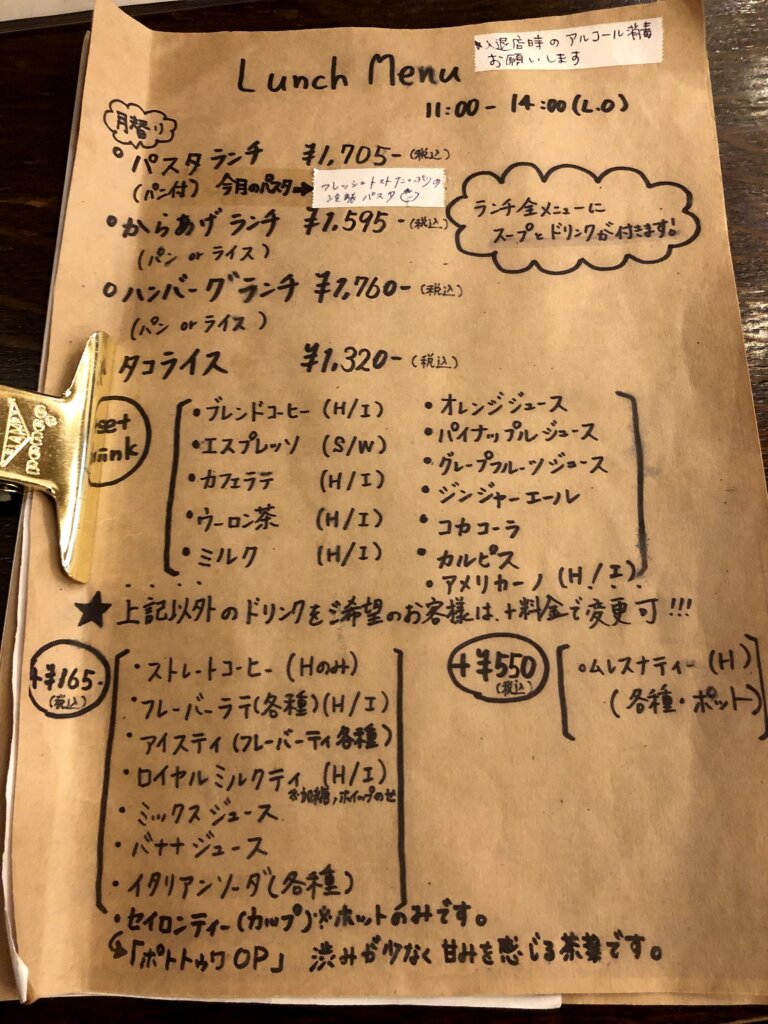 ※入退店時のアルコール消毒
お願いします
Lunch Menu
11:00 - 14:00 (L.O)
月替り
・パスタランチ ¥1,705- (税込)
(パン付) 今月のパスタ→ フレッシュトマトたっぷりの
パスタ
・からあげランチ ¥1,595- (税込)
(パン or ライス)
○ハンバーグランチ ¥1,760- (税込)
(パン or ライス)
タコライス ¥1,320- (税込)
ランチ全メニューに
スープとドリンクが付きます!
set
・ブレンドコーヒー (H/I)
・エスプレッソ (S/W)
・カフェラテ (H/I)
・ウーロン茶 (H/I)
・ミルク (H/I)
・オレンジジュース
・パイナップルジュース
・グレープフルーツジュース
・ジンジャーエール
・コカコーラ
・カルピス
・アメリカーノ (H/I)
★上記以外のドリンクをご希望のお客様は、+料金で変更可!!!
+¥165-
(税込)
・ストレートコーヒー (Hのみ)
・フレーバーラテ(各種)(H/I)
・アイスティ (フレーバーティ各種)
・ロイヤルミルクティ (H/I)
※加糖、ホイップのせ
・ミックスジュース
・バナナジュース
・イタリアンソーダ(各種)
・セイロンティー(カップ)※ホットのみです。
↳「ポトトゥワOP」 渋みが少なく甘みを感じる茶葉です。
+¥550
(税込)
○ムレスナティー (H)
(各種・ポット)